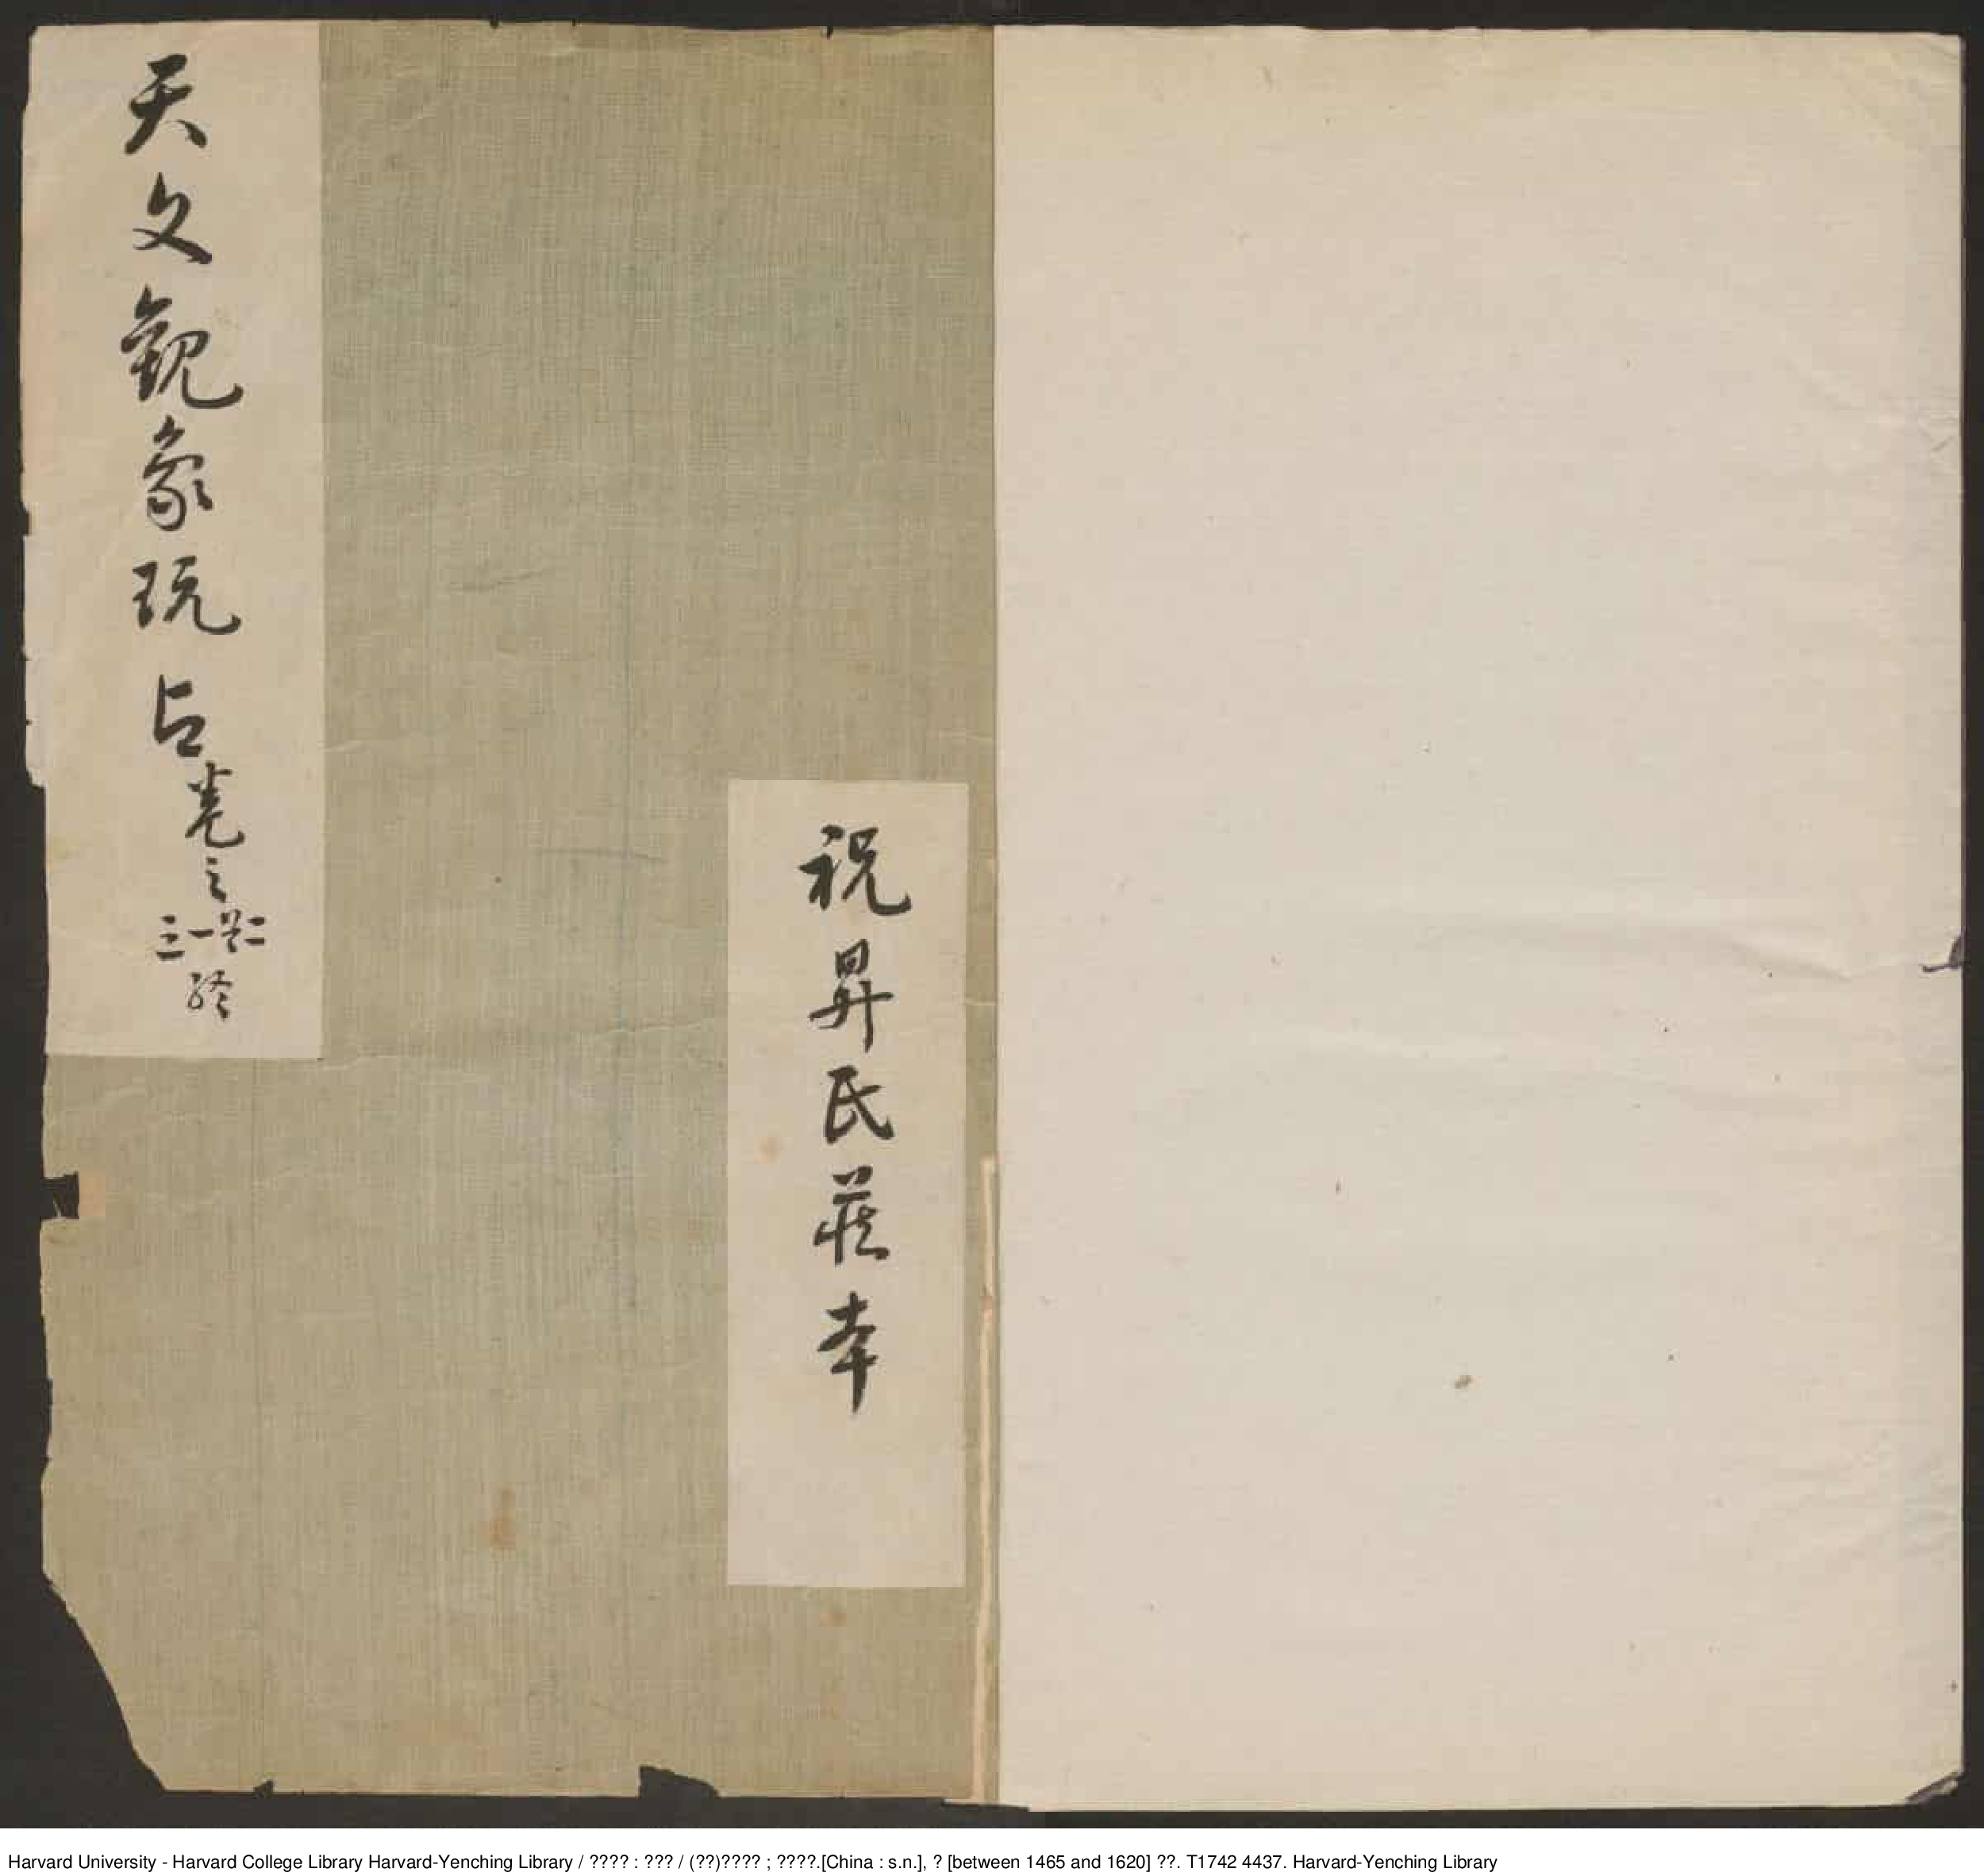 祝昇氏蔵本
天文觀象玩占卷之
二
一
三
終
Harvard University - Harvard College Library Harvard-Yenching Library / ???? : ??? / (??)???? ; ????.[China : s.n.], ? [between 1465 and 1620] ??. T1742 4437. Harvard-Yenching Library